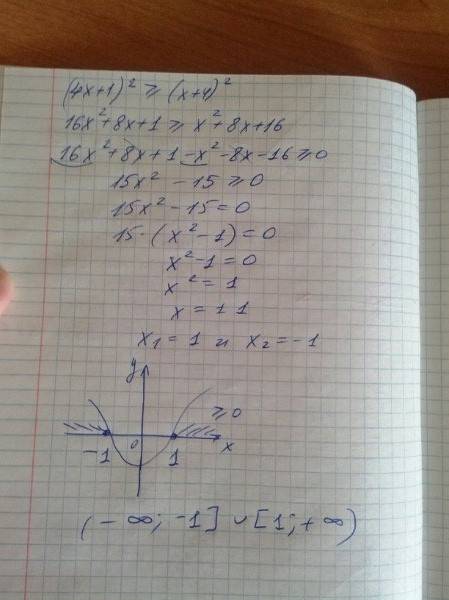 (4x+1)² ≥ (x+4)²
16x²+8x+1 ≥ x²+8x+16
16x²+8x+1-x²-8x-16≥0
15x²-15≥0
15x²-15=0
15·(x²-1)=0
x²-1=0
x²=1
x=±1
x₁=1 и x₂=-1
y
≥0
-1 0 1 x
(-∞; -1] ∪ [1; +∞)